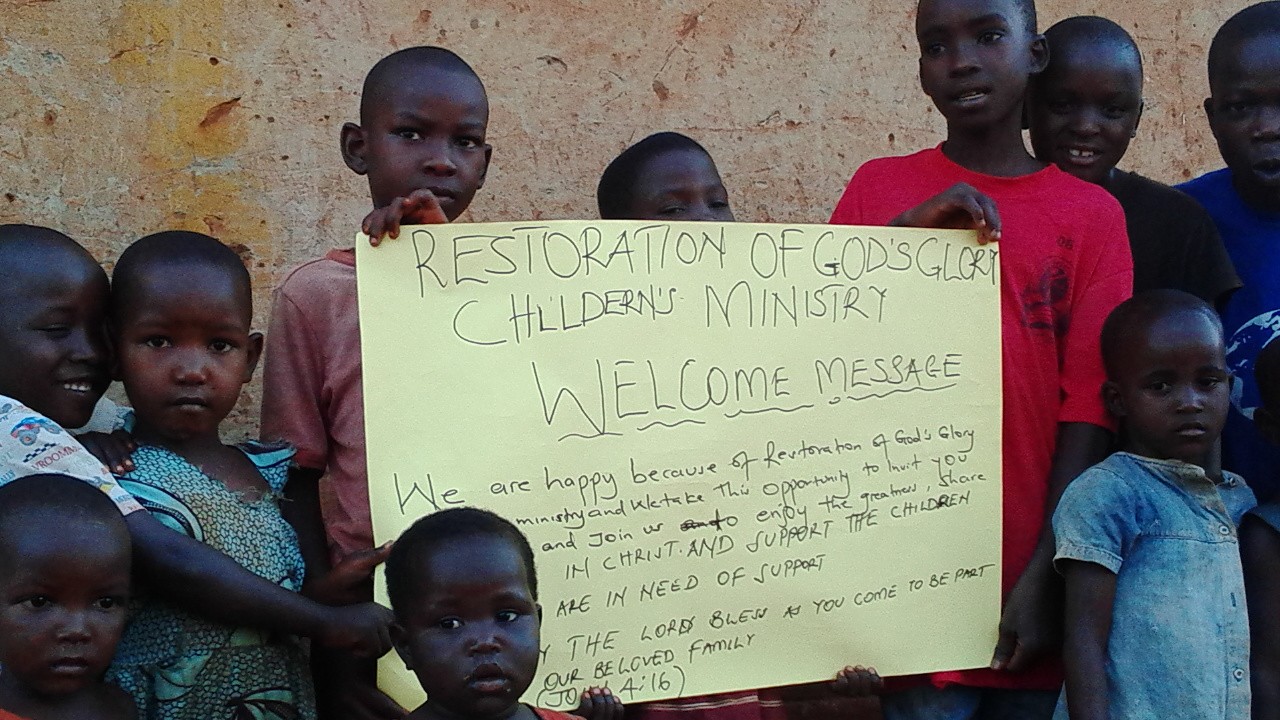 RESTORATION OF GOD'S GLORY
CHILDERN'S MINISTRY
WELCOME MESSAGE
We are happy because of Restoration of God's Glory
ministry and We take This opportunity to Invit YOU
and Join us to enjoy the greatness, Share
IN CHRIST. AND SUPPORT THE CHILDREN
ARE IN NEED OF SUPPORT
THE LORD BLESS AS YOU COME TO BE PART
OUR BELOVED FAMILY
4:16)
VROOMM